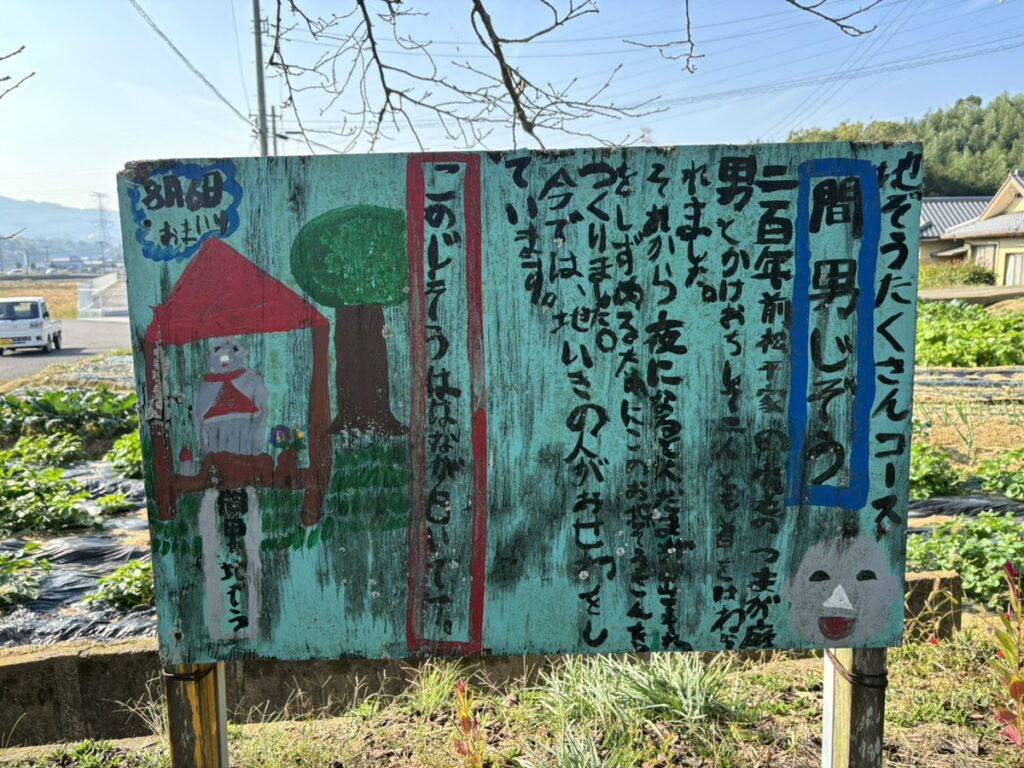 地ぞうたくさんコース
間男じぞう
二百年前 家の つまが庭
男とかけおちして二人とも首をはねら
れました。
それから夜になると火 が出 それ
をしずめるためにこのお地ぞうさんを
つくりました。
今では、地いきの人がおせわをし
ています。
このじぞうははなが
8月6日
おまいり
間男地ぞう